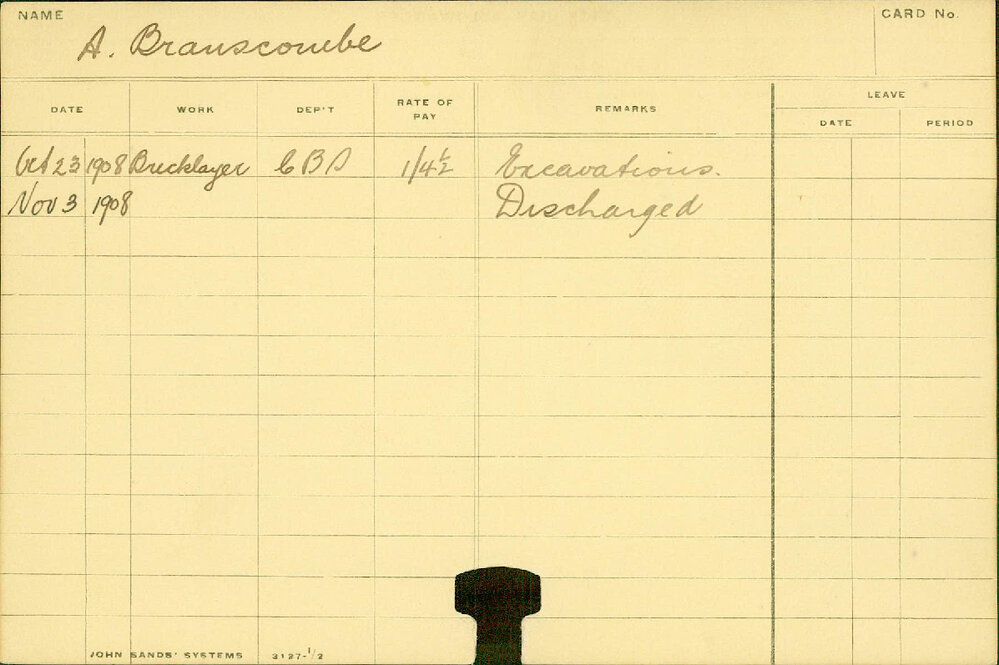 NAME
A. Branscombe
CARD No.
DATE WORK DEP'T RATE OF PAY REMARKS LEAVE
DATE PERIOD
Oct 23 1908 Bricklayer C B D 1/4½ Excavations.
Nov 3 1908 Discharged
JOHN SANDS' SYSTEMS 3127-1/2